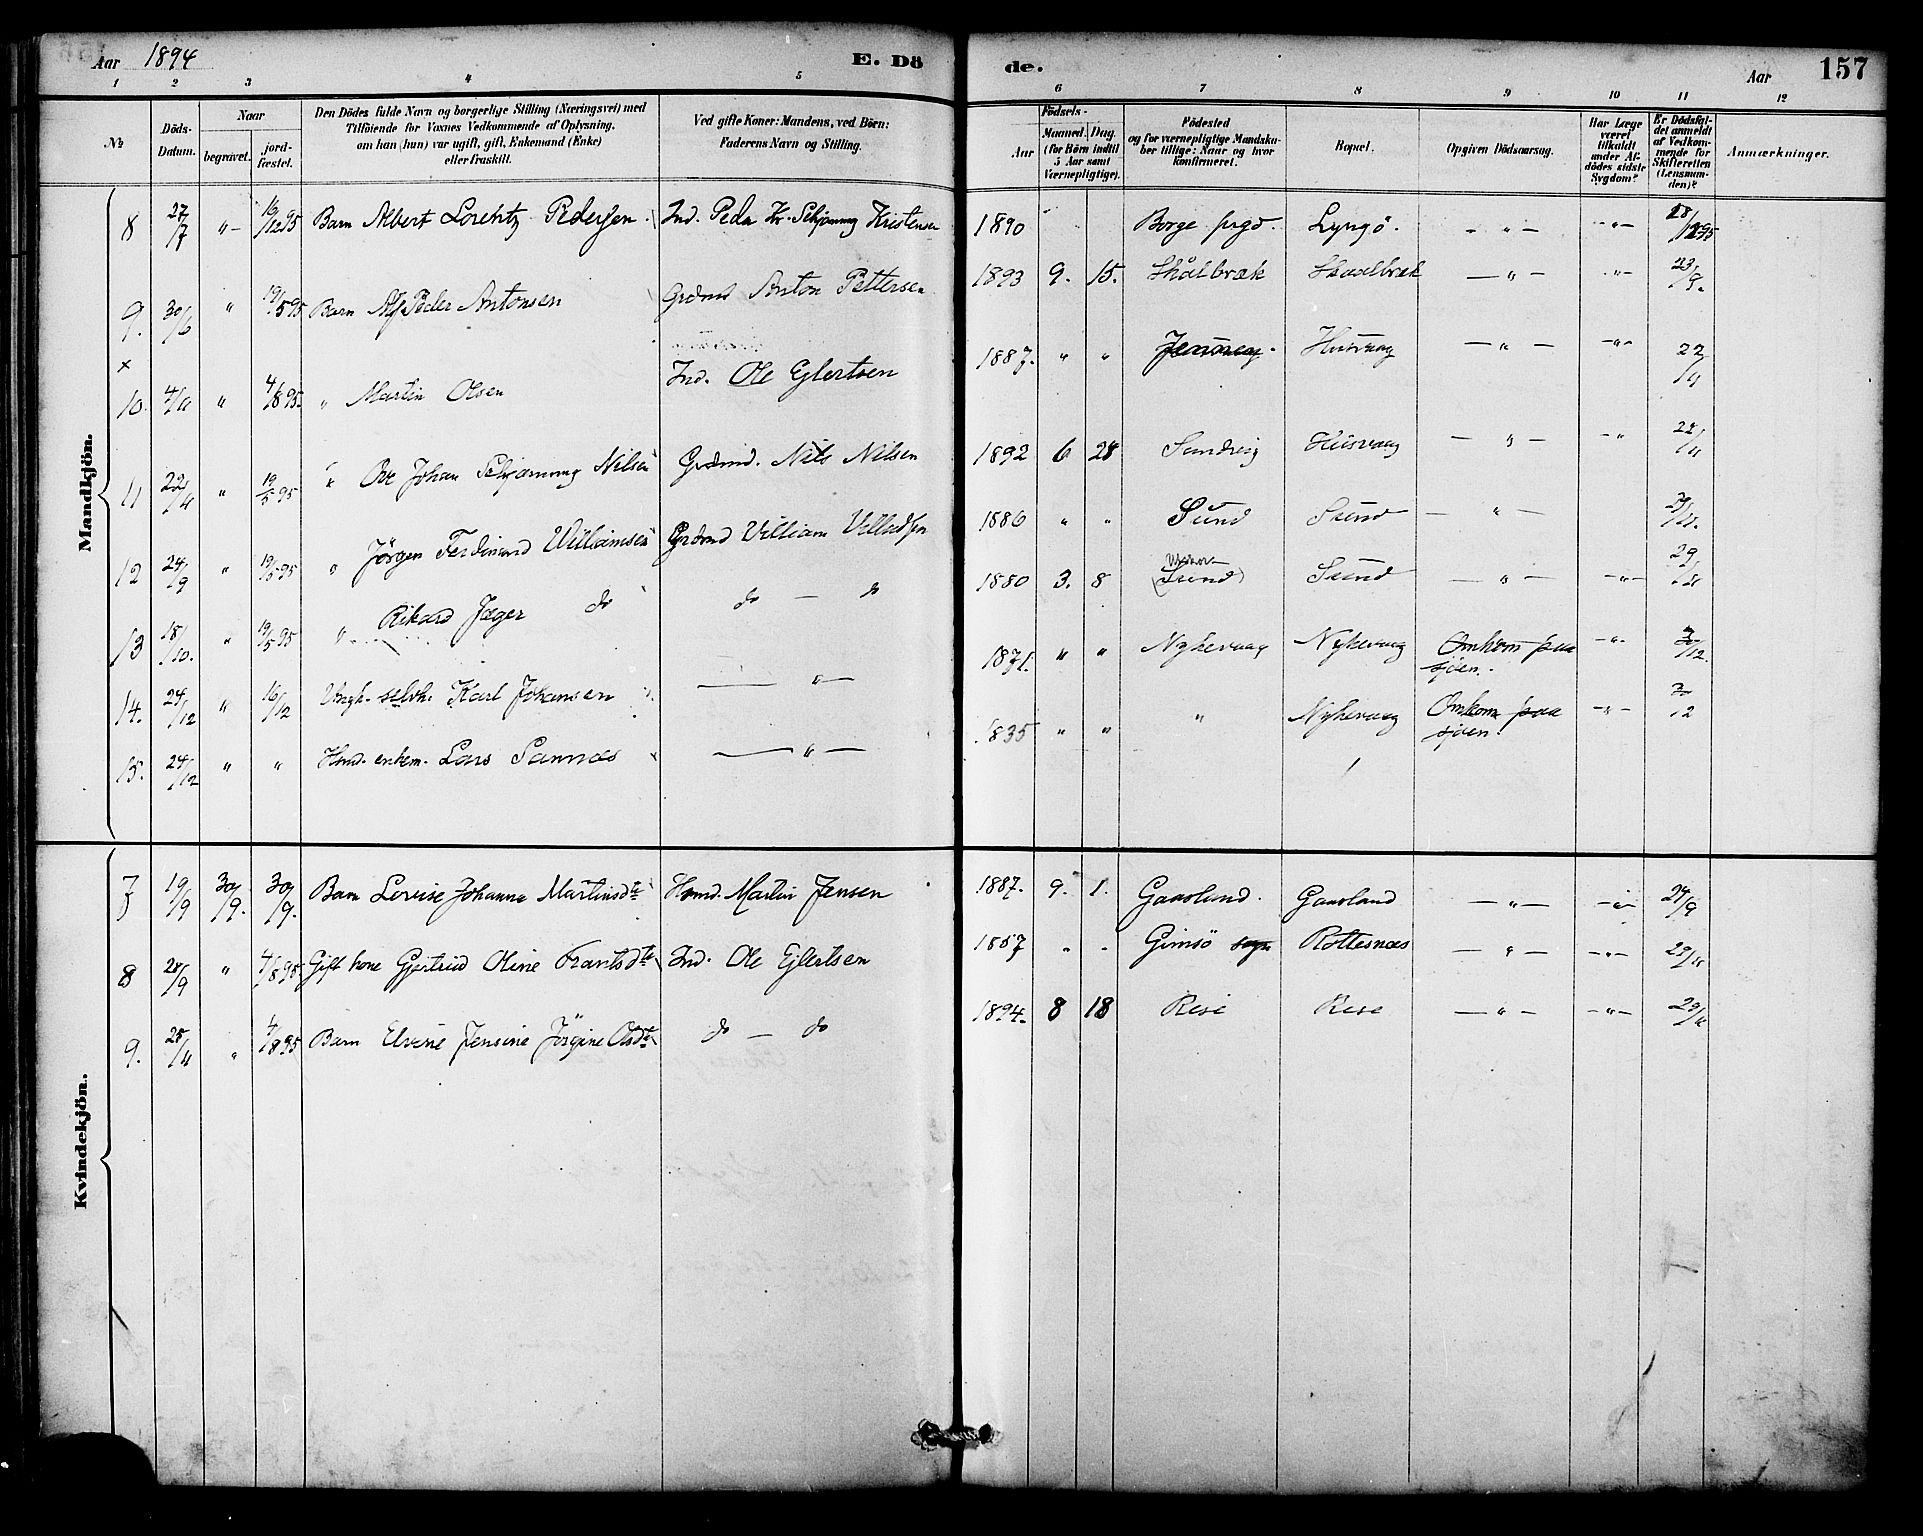 Aar 1894 E. Dö de. Aar 157
1 2 3 4 5 6 7 8 9 10 11 12
No
Döds-Datum.
Naar
begravet.
jord-fæstet.
Den Dödes fulde Navn og borgerlige Stilling (Næringsvei) med
Tilföiende for Voxnes Vedkommende af Oplysning,
om han (hun) var ugift, gift, Enkemand (Enke)
eller fraskilt.
Ved gifte Koner: Mandens, ved Börn:
Faderens Navn og Stilling.
Födsels-
Aar Maaned. Dag.
(for Börn indtil
5 Aar samt
Værnepligtige).
Födested
og for værnepligtige Mandska-
ber tillige: Naar og hvor
konfirmeret.
Bopæl.
Opgiven Dödsaarsag.
Har Læge
været
tilkaldt
under Af-
dödes sidste
Sygdom?
Er Dödsfal-
det anmeldt
af Vedkom-
mende for
Skifteretten
(Lensman-
den)?
Anmærkninger.
Mandkjön.
8 27/7 " 16/12 95 Barn Albert Lorentz Pedersen Ind. Peder Kr. Schjønning Kristensen 1890 Borge prgd. Lyngö. — " — — " —
9. 30/6 " 19/5 95 Barn Alf Peder Antonsen Grdmd Anton Pettersen 1893 9. 15. Skålbræk Skaalbræk — " — — " — 23/9.
x
10. 4/11 " 4/8 95. " Martin Olsen Ind. Ole Ejlertsen 1887. " " Husvaag — " — — " — 22/11
11 22/4 " 19/5 95 " Ove Johan Schjønning Nilsen Grdmd. Nils Nilsen 1892 6 28 Sandvig Husvaag — " — — " 22/11
12 24/9 " 19/5 95 " Jörgen Ferdinand Williamsen Grdmd William Villadsen 1886 " " Sund Sund — " —
13 18/10. " 19/5 95 " Rikard Jæger do do — do 1880 3. 8 (Sund) Sund — " — — " — 29/11
14. 24/12 " 16/12 Ungk. selvh. Karl Johansen — " — 1871. " " Nykevaag Nykevaag Omkom paa
sjöen. — " — 3/12.
15. 24/12 " " Hmd. enkem. Lars Sannæs — " — 1835 " " " Nykevaag Omkom paa
sjöen. — " — 3/12
Kvindekjön.
7 19/9 30/9. 30/9. Barn Lovise Johanna Martinsdtr Hmd. Martin Jensen 1887. 9. 1. Gaasland. Gaasland — " — — " — 24/9
8 28/9 " 4/8 95 Gift kone Gjertrud Oline Frantsdtr Ind. Ole Ejlertsen 1857 " " Gimsö sogn Rottesnæs — " — — " — 29/11
9. 28/11 " 4/8 95 Barn Elvine Jensine Jörgine Olsdtr do — do 1894. 8 18 Rese Rese — " — — " — 29/11